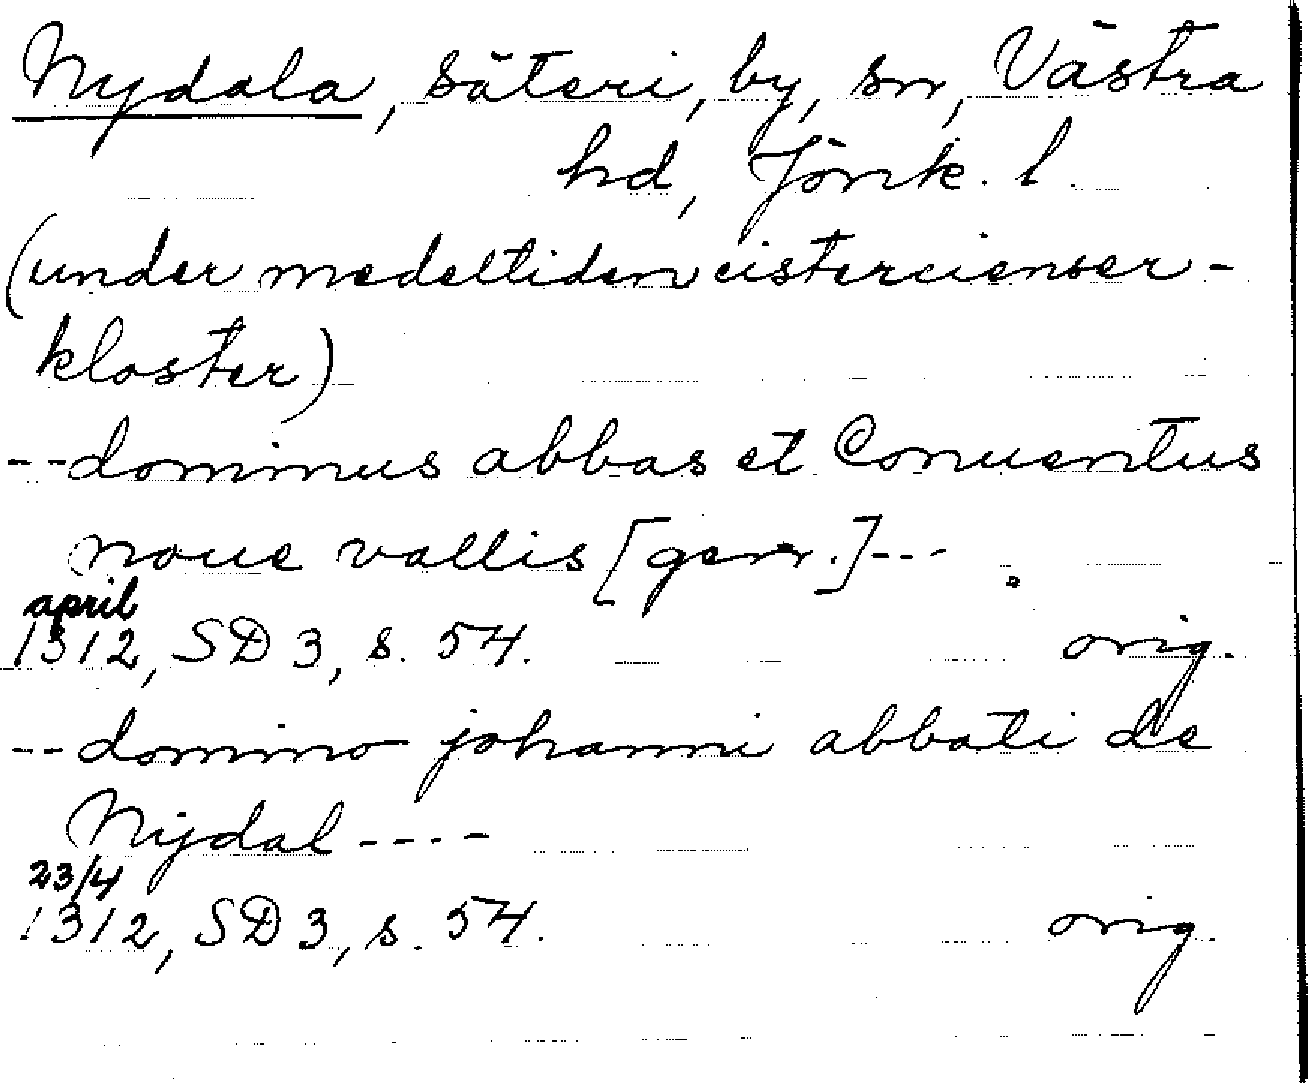 Nydala, säteri, by, sn, Västra
hd, Jönk. l.
(under medeltiden cistercienser-
kloster)
--dominus abbas et Conuentus
noue vallis [gen.]---
april
1312, SD 3, s. 54. orig.
--domino johanni abbati de
Nijdal----
23/4
1312, SD 3, s. 54. orig.